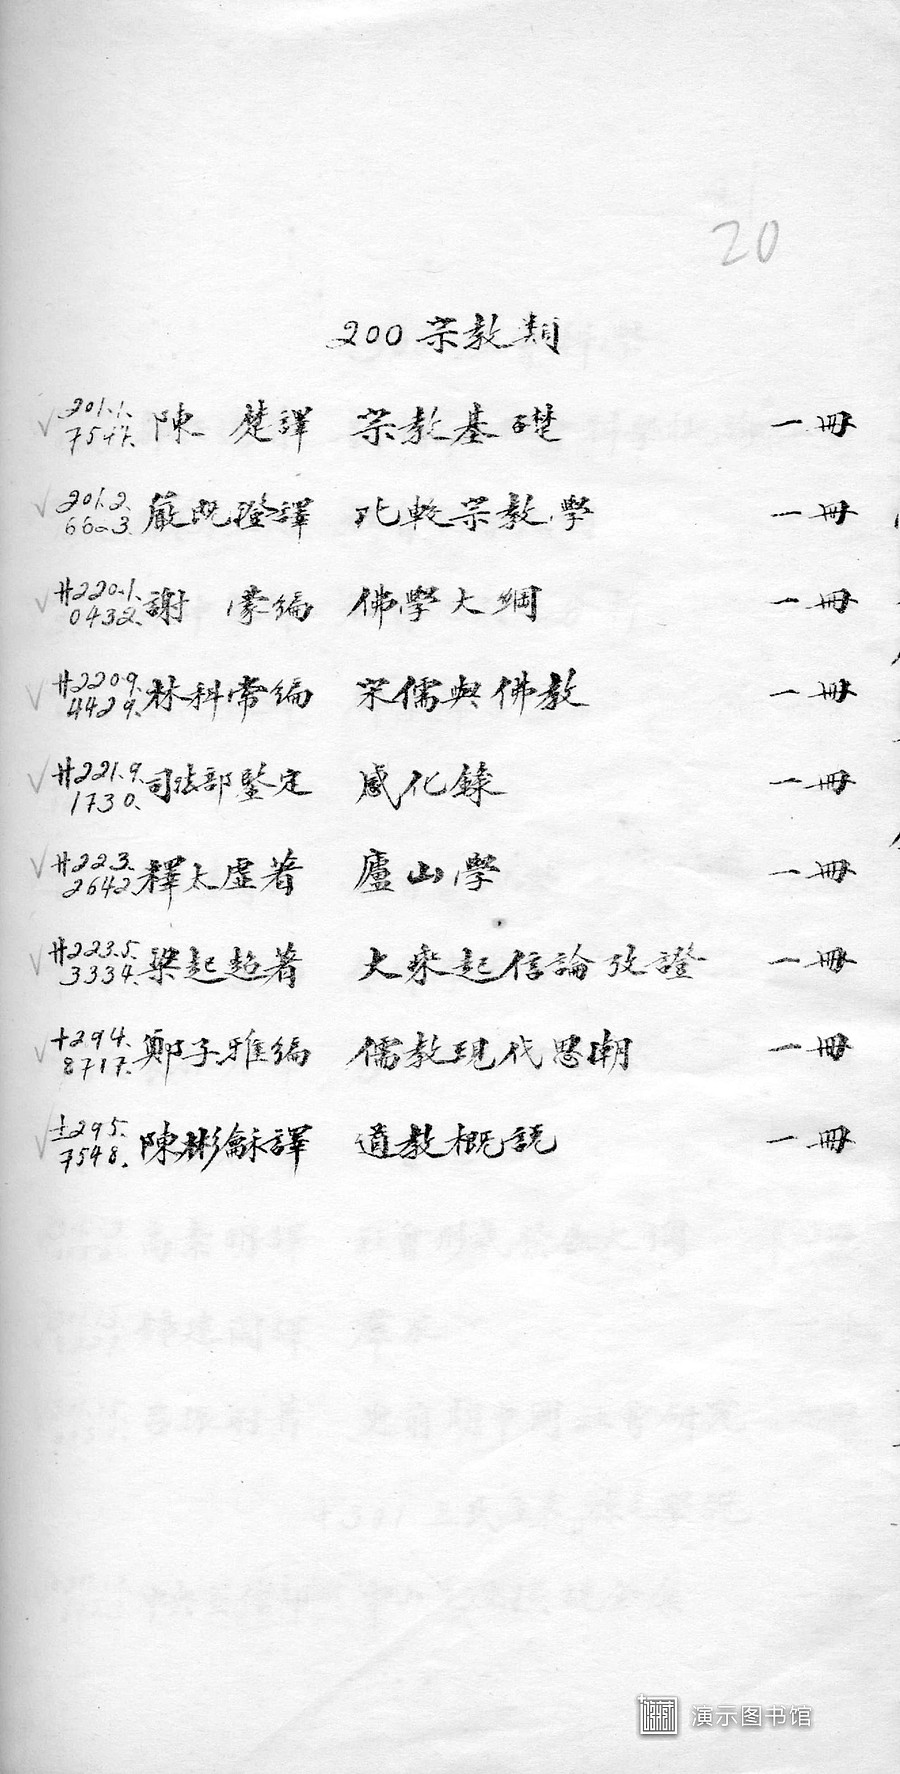 20
200 宗教類
201.1. 陳 楚譯 宗教基礎 一冊
75
201.2. 嚴既澄譯 比較宗教學 一冊
6603.
廾220.1. 謝 濛編 佛學大綱 一冊
0432.
廾220.9. 林科棠編 宋儒與佛教 一冊
4429.
廾221.9. 司法部鑒定 感化錄 一冊
1730.
廾223. 釋太虛著 廬山學 一冊
2642.
廾223.5. 梁起超著 大乘起信論攷證 一冊
3334.
十294. 鄭子雅編 儒教現代思潮 一冊
8717.
±295. 陳彬龢譯 道教概説 一冊
7548.
演示图书馆